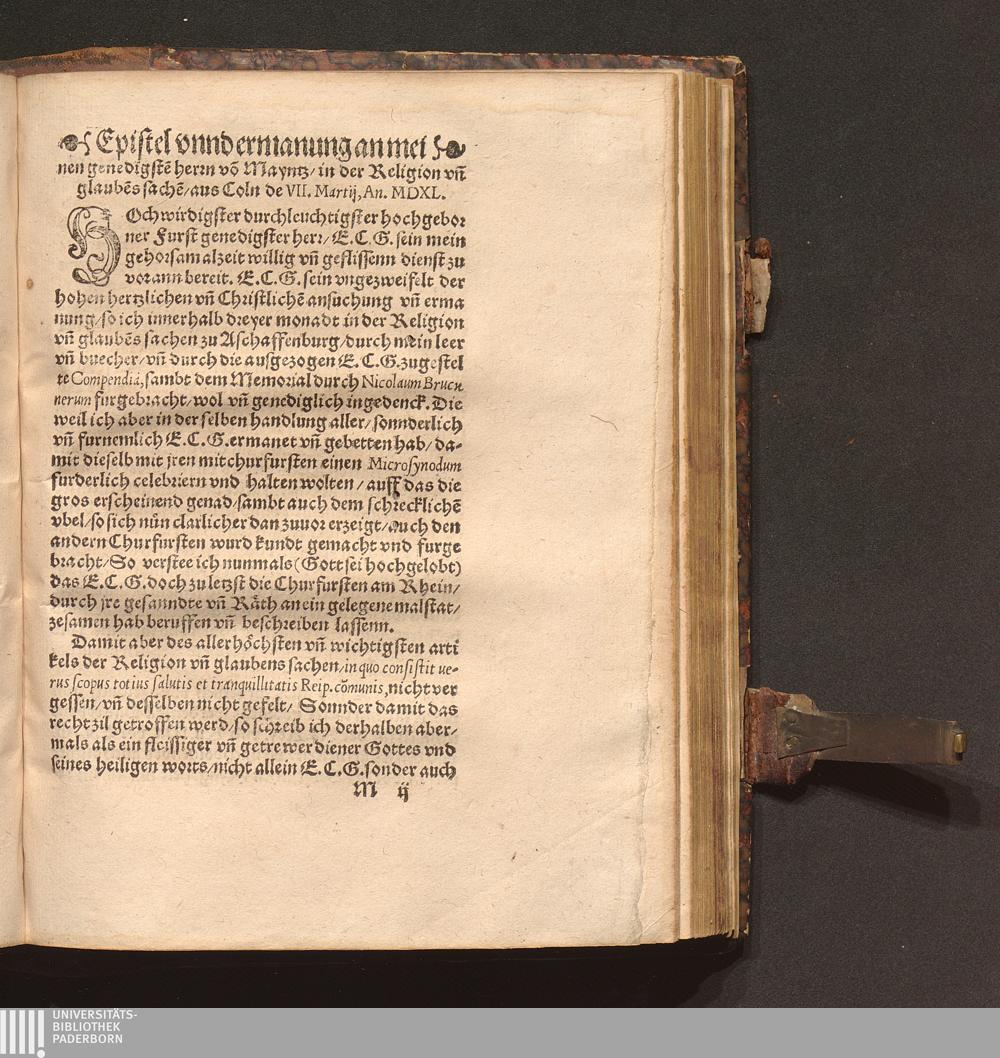 Epistel vnnd ermanung an mei
nen genedigstē herrn vō Mayntz/ in der Religion vñ
glaubēs sachē/ aus Coln de VII. Martij, An. MDXL.
HOchwirdigster durchleuchtigster hochgebor
ner Furst genedigster herr/ E.C.G. sein mein
gehorsam alzeit willig vñ geflissenn dienst zu
vorann bereit. E.C.G. sein vngezweifelt der
hohen hertzlichen vñ Christlichē ansuchung vñ erma
nung/ so ich innerhalb dreyer monadt in der Religion
vñ glaubēs sachen zu Aschaffenburg/ durch mein leer
vñ buecher/ vñ durch die ausgezogen E.C.G. zugestel
te Compendiá, sambt dem Memorial durch Nicolaum Brucu
nerum furgebracht/ wol vñ genediglich ingedenck. Die
weil ich aber in der selben handlung aller/ sonnderlich
vñ furnemlich E.C.G. ermanet vñ gebetten hab/ da-
mit dieselb mit jren mitchurfursten einen Microsynodum
furderlich celebriern vnd halten wolten/ auff das die
gros erscheinend genad/ sambt auch dem schrecklichē
vbel/ so sich nůn clarlicher dan zuuor erzeigt/ auch den
andern Churfursten wurd kundt gemacht vnd furge
bracht/ So verstee ich nunmals (Gott sei hochgelobt)
das E.C.G. doch zu letzst die Churfursten am Rhein/
durch jre gesanndte vñ Räth an ein gelegene malstat/
zesamen hab beruffen vñ beschreiben lassenn.
Damit aber des allerhöchsten vñ wichtigsten arti
kels der Religion vñ glaubens sachen/ in quo consistit ue-
rus scopus totius salutis et tranquillitatis Reip. cōmunis, nicht ver
gessen/ vñ desselben nicht gefelt/ Sonnder damit das
recht zil getroffen werd/ so schreib ich derhalben aber/
mals als ein fleissiger vñ getrewer diener Gottes vnd
seines heiligen worts/ nicht allein E.C.G. sonder auch
M ij
UNIVERSITÄTS-
BIBLIOTHEK
PADERBORN